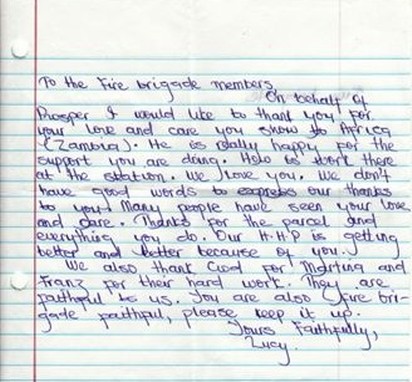 To the Fire brigade members,
On behalf of
Prosper I would like to thank you for
your love and care you show to Africa
(Zambia). He is really happy for the
support you are doing. Helo is work there
at the station. We love you. We don't
have good words to express our thanks
to you. Many people have seen your love
and care. Thanks for the parcel and
everything you do. Our H.H.P is getting
better and better because of you.
We also thank God for Martina and
Franz for their hard work. They are
faithful to us. You are also fire bri-
gade faithful, please keep it up.
Yours Faithfully,
Lucy.